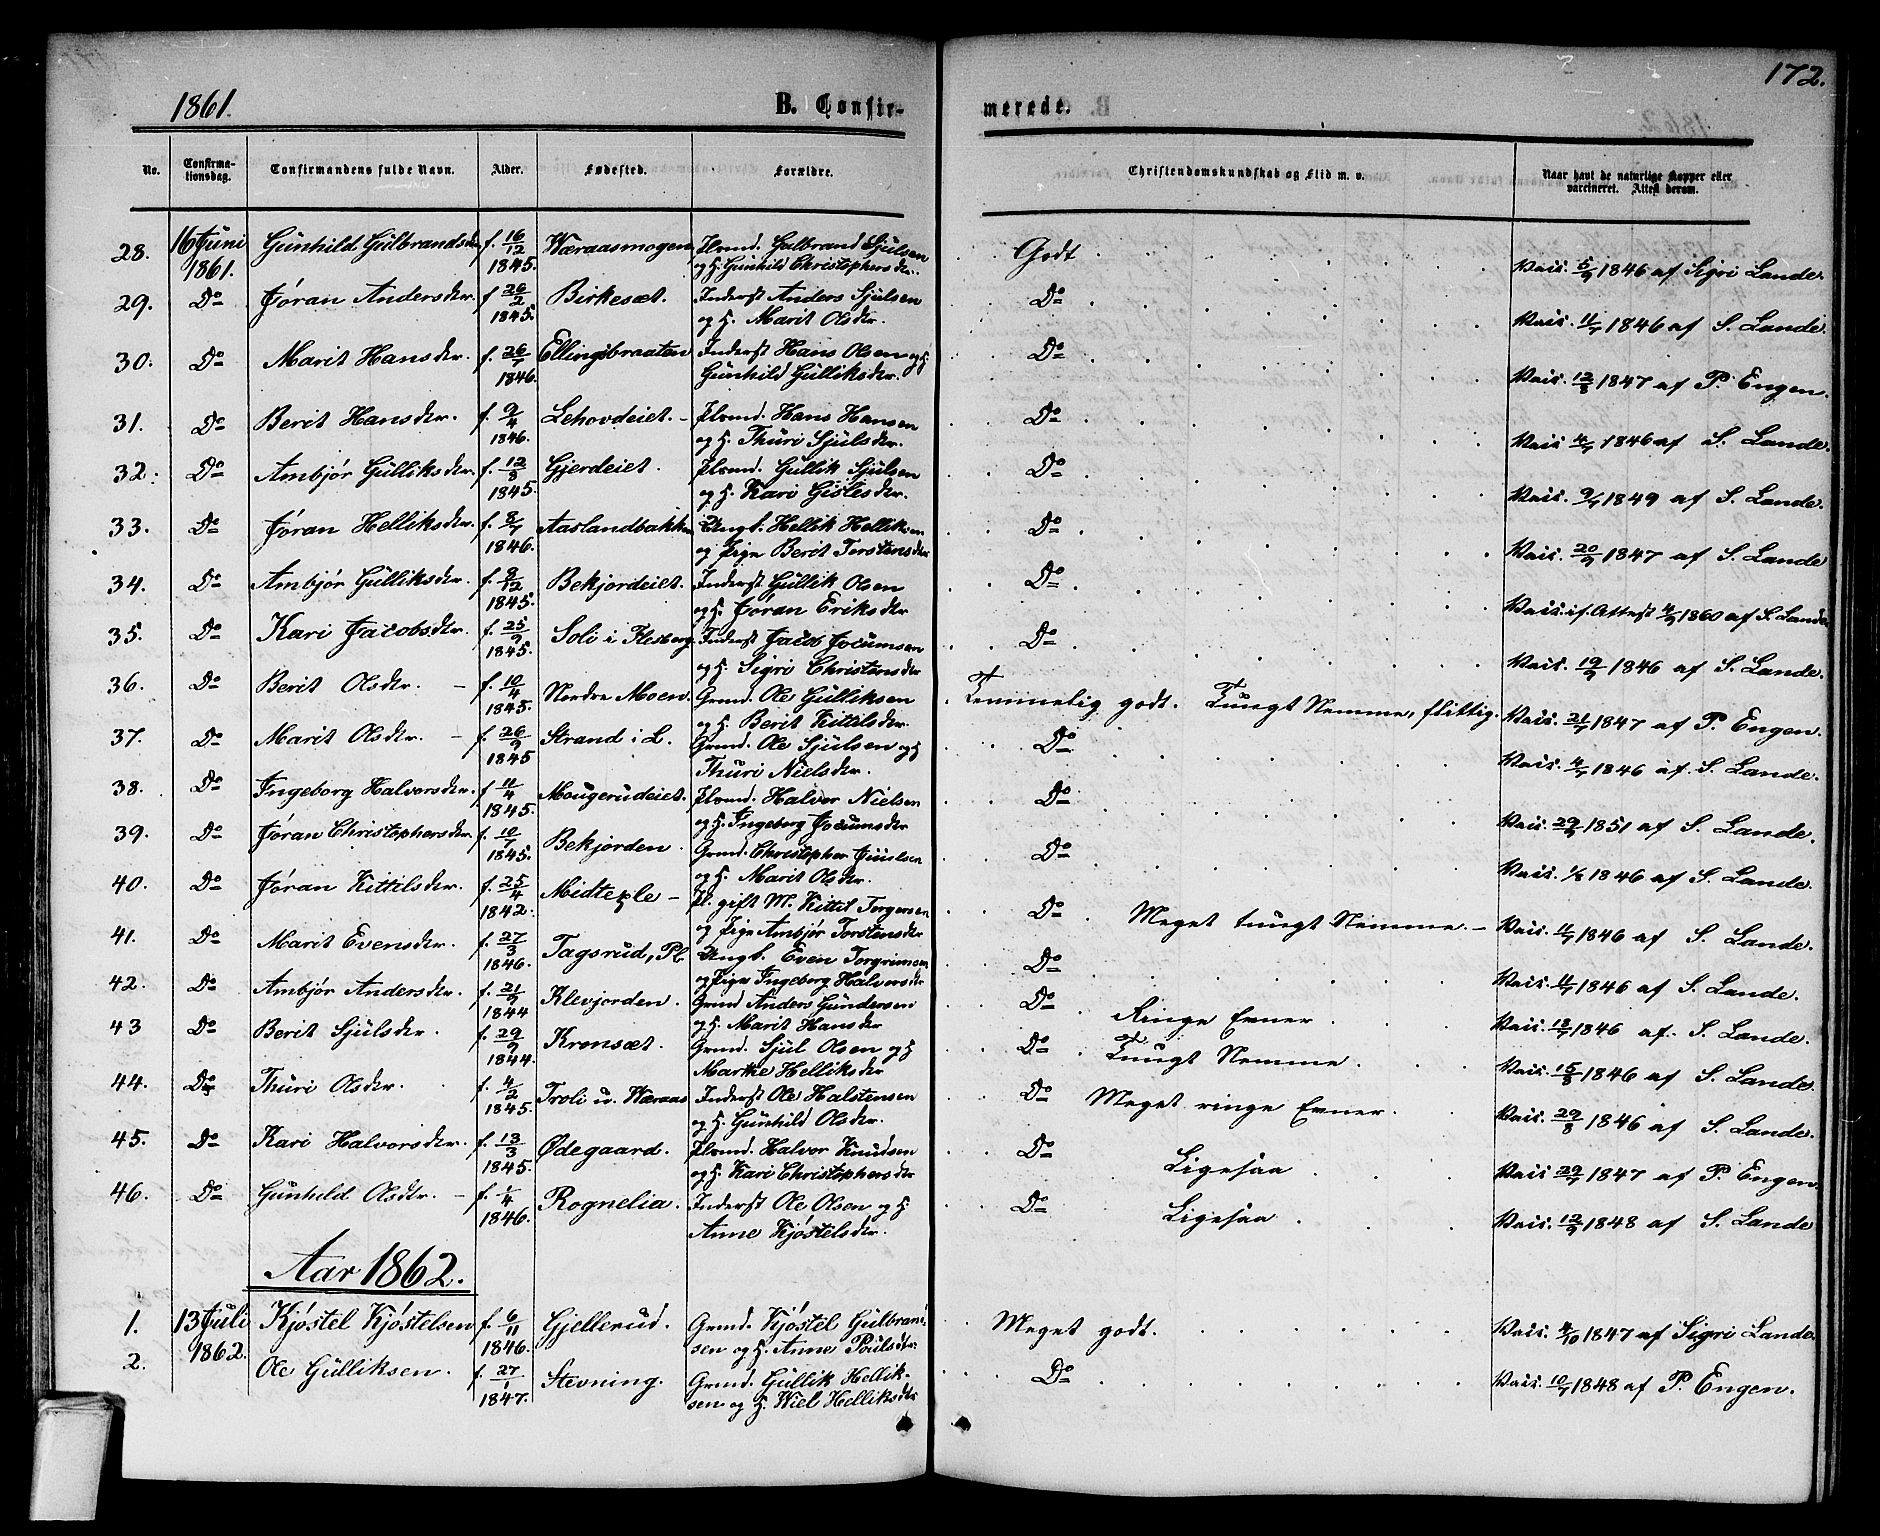 1861.
B. Confir-
merede.
172.
No.
Confirma-
tionsdag.
Confirmandens fulde Navn.
Alder.
Fødested.
Forældre.
Christendomskundskab og Flid m. v.
Naar havt de naturlige Kopper eller
vaccineret. Attest derom.
28. 16 Juni 1861. Gunhild Gulbrandsdr. f. 16/12 1845. Væraasmogen Plsmd. Gulbrand Sjulsen og H. Gunhild Christophersdr. Godt Vaic. 5/9 1846 af Sigri Lande.
29. Do Jøran Andersdr. f 26/2 1845. Birkesæt. Inderst Anders Sjulsen og H. Marit Olsdr. Do Vaic. 11/7 1846 af S. Lande.
30. Do Marit Hansdr. f. 26/7 1846. Ellingsbraaten Inderst Hans Olsen og H. Gunhild Gulliksdr. Do Vaic. 12/8 1847 af P. Engen.
31. Do Berit Hansdr. f. 9/4 1846. Lehovdeiet. Plsmd. Hans Hansen og H. Thuri Sjulsdr. Do Vaic. 4/7 1846 af S. Lande.
32. Do Ambjør Gulliksdr. f. 12/8 1845. Gjerdeiet. Plsmd. Gullik Sjulsen og H. Kari Gislesdr. Do Vaic. 9/7 1849 af S. Lande.
33. Do Jøran Helliksdr. f. 8/7 1846. Aaslandbakken Ungk. Hellik Helliksen og Pige Berit Torstensdr Do Vaic. 20/9 1847 af S. Lande
34. Do Ambjør Gulliksdr. f. 8/12 1845. Bekjordeiet. Inderst Gullik Olsen og H. Jøran Eriksdr Do Vaic. if. Attest 4/9 1860 af S. Lande
35. Do Kari Jacobsdr. f. 25/9 1845. Soli i Flesberg. Inderst Jacob Jocumsen og H. Sigri Christensdr Do Vaic. 19/9 1846 af S. Lande.
36. Do Berit Olsdr. f. 10/4 1845. Nordre Moen. Grmd. Ole Gulliksen og H. Berit Kittilsdr. Temmelig godt. Tungt Nemme, flittig. Vaic. 21/7 1847 af P. Engen.
37. Do Marit Olsdr. f. 26/9 1845 Strand i L. Grmd. Ole Sjulsen og H Thuri Nielsdr. Do Vaic. 4/7 1846 af. S. Lande.
38. Do Ingeborg Halvorsdr. f 11/4 1845. Mougerudeiet. Plsmd. Halvor Nielsen og H. Ingeborg Jocumsdr Do Vaic. 29/9 1851 af S. Lande.
39. Do Jøran Christophersdr f. 10/7 1845. Bekjorden. Grmd. Christopher Juulsen og H. Marit Olsdr. Do Vaic. 1/8 1846 af S. Lande.
40. Do Jøran Kittilsdr. f. 25/4 1842. Midtekle Pl. gift M. Kittil Torgersen og Pige Ambjør Torstensdr Do Meget tungt Nemme. Vaic. 11/7 1846 af S. Lande.
41. Do Marit Evensdr. f. 27/3 1846. Tagsrud, Pl. Ungk. Even Torgrimsen og Pige Ingeborg Halvorsdr Do Vaic. 11/7 1846 af S. Lande.
42. Do Ambjør Andersdr. f. 21/9 1844 Klevjorden. Grmd Anders Gundersen og H. Marit Hansdr Do Ringe Evner. Vaic. 18/7 1846 af. S. Lande.
43 Do Berit Sjulsdr. f. 29/9 1844. Kronsæt. Grmd. Sjul Olsen og H Marthe Helliksdr Do Tungt Nemme. Vaic. 15/8 1846 af S. Lande.
44. Do Thuri Olsdr. f. 4/2 1845. Troli u. Væraas Inderst Ole Halstensen og H. Gunhild Olsdr. Do Meget ringe Evner. Vaic. 29/8 1846 af S. Lande.
45. Do Kari Halvorsdr. f. 13/3 1845. Ødegaard. Plsmd. Halvor Knudsen og H. Kari Christophersdr Do Ligesaa Vaic. 29/7 1847 af P. Engen.
46. Do Gunhild Olsdtr. f. 1/4 1846. Rognelia. Inderst Ole Olsen og H Anne Kjøstelsdr. Do Ligesaa Vaic. 12/9 1848 af S. Lande
Aar 1862.
1. 13 Juli 1862. Kjøstel Kjøstelsen f. 6/11 1846. Gjellerud. Grmd. Kjøstel Gulbrand-sen og H. Anne Paulsdtr. Meget godt. Vaic. 4/10 1847 af Sigri Lande.
2. Ole Gulliksen. f. 27/1 1847. Stevning. Grmd. Gullik Hellik-sen og H. Kiel Helliksdtr Do Vaic. 10/7 1848 af P. Engen.